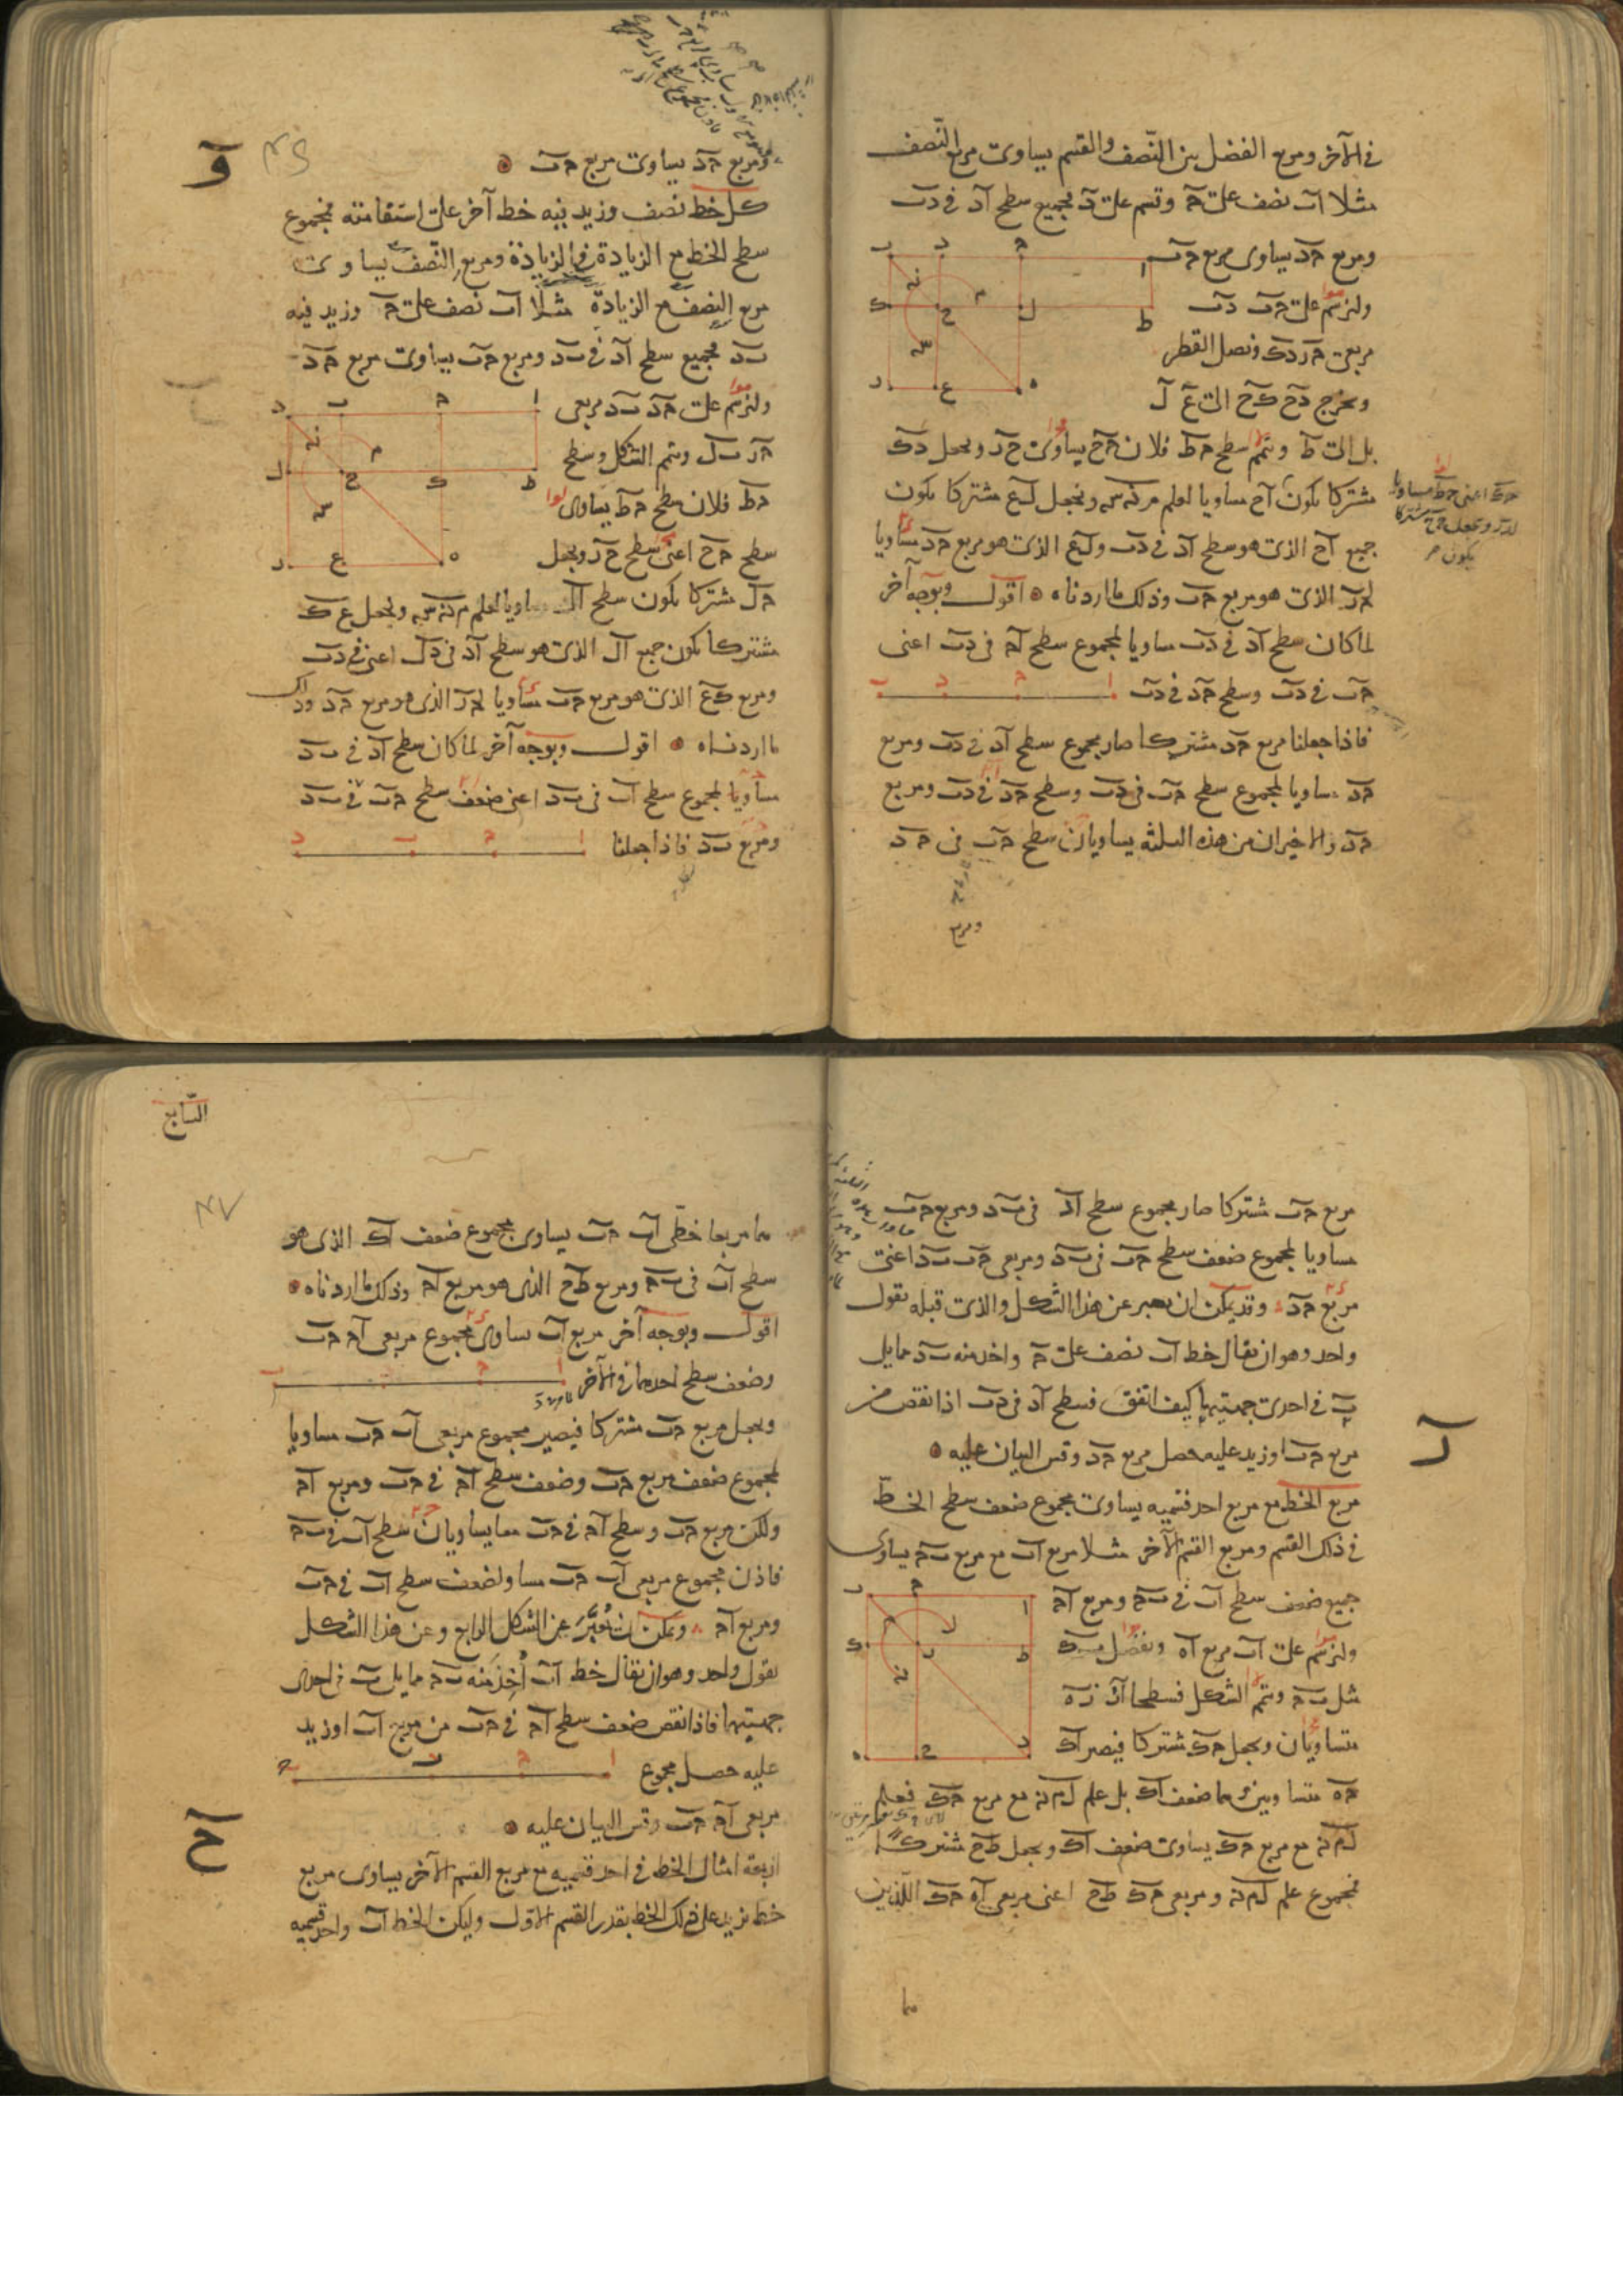 في الآخر ومربع الفضل بين النّصف والقسم يساوى مربع النّصف
مثلا اب نصف على ح وقسم على د فجميع سطح اد في دب
ومربع حد يساوى مربع حب
ولنرسم على حب دب
مربعى حر دك ونصل القطر
ونخرج دح كح الى ع ل
بل الى ط ونتمم سطح حط فلان حح يساوى حر ونجعل دك
مشتركا يكون اح مساويا لعلم مه نه سه ونجعل لع مشتركا يكون
جميع اح الذى هو سطح اد في دب ولع الذى هو مربع حد مساويا
لحر الذى هو مربع حب وذلك ما اردناه اقول وبوجه آخر
لما كان سطح اد في دب مساويا لمجموع سطح اح في دب اعنى
حب في دب وسطح حد في دب
فاذا جعلنا مربع حد مشتركا صار مجموع سطح اد في دب ومربع
حد مساويا لمجموع سطح حب في دب وسطح حد في دب ومربع
حد والاخيران من هذه الثلثه يساويان سطح حب في حد
ومربع
و
ومربع حد يساوى مربع حب
كل خط نصف وزيد فيه خط آخر على استقامته فمجموع
سطح الخط مع الزيادة في الزيادة ومربع النّصف يساوى
مربع النصف مع الزيادة مثلا اب نصف على ح وزيد فيه
بد فجميع سطح اد في بد ومربع حب يساوى مربع حد
ولنرسم على حد بد مربعى
حر بل ونتمم الشكل وسطح
حط فلان سطح حط يساوى
سطح حح اعنى سطح حر ونجعل
حل مشتركا يكون سطح ال مساويا لعلم م نه سه ونجعل ع ك
مشتركا يكون جميع ال الذى هو سطح اد في دل اعنى في دب
ومربع كع الذى هو مربع حب مساويا لحر الذى هو مربع حد وذلك
ما اردناه اقول وبوجه آخر لما كان سطح اد في بد
مساويا لمجموع سطح اب في بد اعنى ضعف سطح حب في بد
ومربع بد فاذا جعلنا
مربع حب مشتركا صار مجموع سطح اد في بد ومربع حب
مساويا لمجموع ضعف سطح حب في بد ومربعى حب بد اعنى
مربع حد وقد يمكن ان يعبر عن هذا الشكل والذى قبله بقول
واحد وهو ان يقال خط اب نصف على ح واخذ منه بد مما يلى
ب في احدى جهتيها كيف اتفق فسطح اد في دب اذا نقص من
مربع حب او زيد عليه حصل مربع حد وقس البيان عليه
ر
مربع الخطّ مع مربع احد قسميه يساوى مجموع ضعف سطح الخطّ
في ذلك القسم ومربع القسم الآخر مثلا مربع اب مع مربع بح يساوى
جميع ضعف سطح اب في بح ومربع اح
ولنرسم على اب مربع اه ونفصل بك
مثل بح ونتمم الشكل فسطحا ار ره
متساويان ونجعل حك مشتركا فيصير اك
حه متساويين وهما ضعف اك بل علم ل م نه مع مربع حك فعلم
ل م نه مع مربع حك يساوى ضعف اك ونجعل طح مشتركا
فمجموع علم ل م نه ومربعى حك طح اعنى مربعى اه حك اللّذين
هما
السّابع
هما مربعا خطّى اب حب يساوى مجموع ضعف اك الذى هو
سطح اب في بح ومربع طح الذى هو مربع اح وذلك ما اردناه
اقول وبوجه آخر مربع اب يساوى مجموع مربعى اح حب
وضعف سطح احدهما في الآخر
ونجعل مربع حب مشتركا فيصير مجموع مربعى اب حب مساويا
لمجموع ضعف مربع حب وضعف سطح اح في حب ومربع اح
ولكن مربع حب وسطح اح في حب معا يساويان سطح اب في بح
فاذن مجموع مربعى اب حب مساو لضعف سطح اب في حب
ومربع اح ويمكن ان يُعبَّر عن الشكل الرابع وعن هذا الشكل
بقول واحد وهو ان يقال خط اب أخذ منه بح مما يلى ب في احدى
جهتيها فاذا نقص ضعف سطح اح في حب من مربع اب او زيد
عليه حصل مجموع
مربعى اح حب وقس البيان عليه
ح
اربعة امثال الخط في احد قسميه مع مربع القسم الآخر يساوى مربع
خط يزيد على ذلك الخط بقدر القسم الاول وليكن الخط اب واحد قسميه